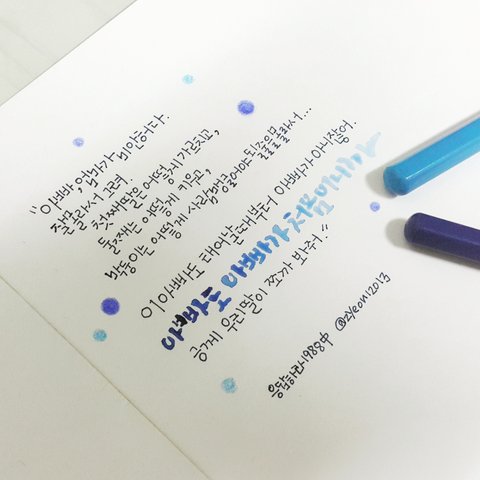 "아빠, 엄마가 미안허다.
잘 몰라서 그려.
첫째딸은 어떻게 가르치고,
둘째는 어떻게 키우고,
막둥이는 어떻게 사람 맹글어야 될 줄을 몰라서...
이 아빠도 태어날때부터 아빠가 아니잖어.
아빠도 아빠가 처음이니까
긍게 우리 딸이 쪼까 봐줘."
응답하라1988中 @zyeoni2013